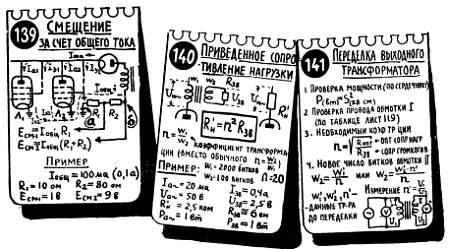 139
СМЕЩЕНИЕ
ЗА СЧЕТ ОБЩЕГО ТОКА
Л₁
Л₂
R₁
R₂
а
б
Eсм1=Iобщ R₁
Eсм2=Iобщ (R₁+R₂)
ПРИМЕР
Iобщ=100ма (0,1а)
R₁=10 ом R₂=80 ом
Eсм1=1В Eсм2=9В
140
ПРИВЕДЕННОЕ СОПРО-
ТИВЛЕНИЕ НАГРУЗКИ
W₁ W₂
R'н=n²Rзв
КОЭФФИЦИЕНТ ТРАНСФОРМА-
ЦИИ (ВМЕСТО ОБЫЧНОГО
ПРИМЕР: W₁=2000 ВИТКОВ
W₂=100 ВИТКОВ n=20
Ia~=20ма Iзв=0,4а
Ua~=50В Uзв=2,5В
R'н=2,5ком Rзв=6ом
Pa~=1вт Pзв=1вт
141
ПЕРЕДЕЛКА ВЫХОДНОГО
ТРАНСФОРМАТОРА
1 ПРОВЕРКА МОЩНОСТИ (ПО СЕРДЕЧНИКУ)
P(вт)=S²(кв см)
2 ПРОВЕРКА ПРОВОДА ОБМОТКИ I
(ПО ТАБЛИЦЕ ЛИСТ 119)
3. НЕОБХОДИМЫЙ КОЭФ ТР ЦИИ
4. НОВОЕ ЧИСЛО ВИТКОВ ОБМОТКИ II
ИЛИ
ИЗМЕРЕНИЕ n'
-ДАННЫЕ ТР-РА
ДО ПЕРЕДЕЛКИ